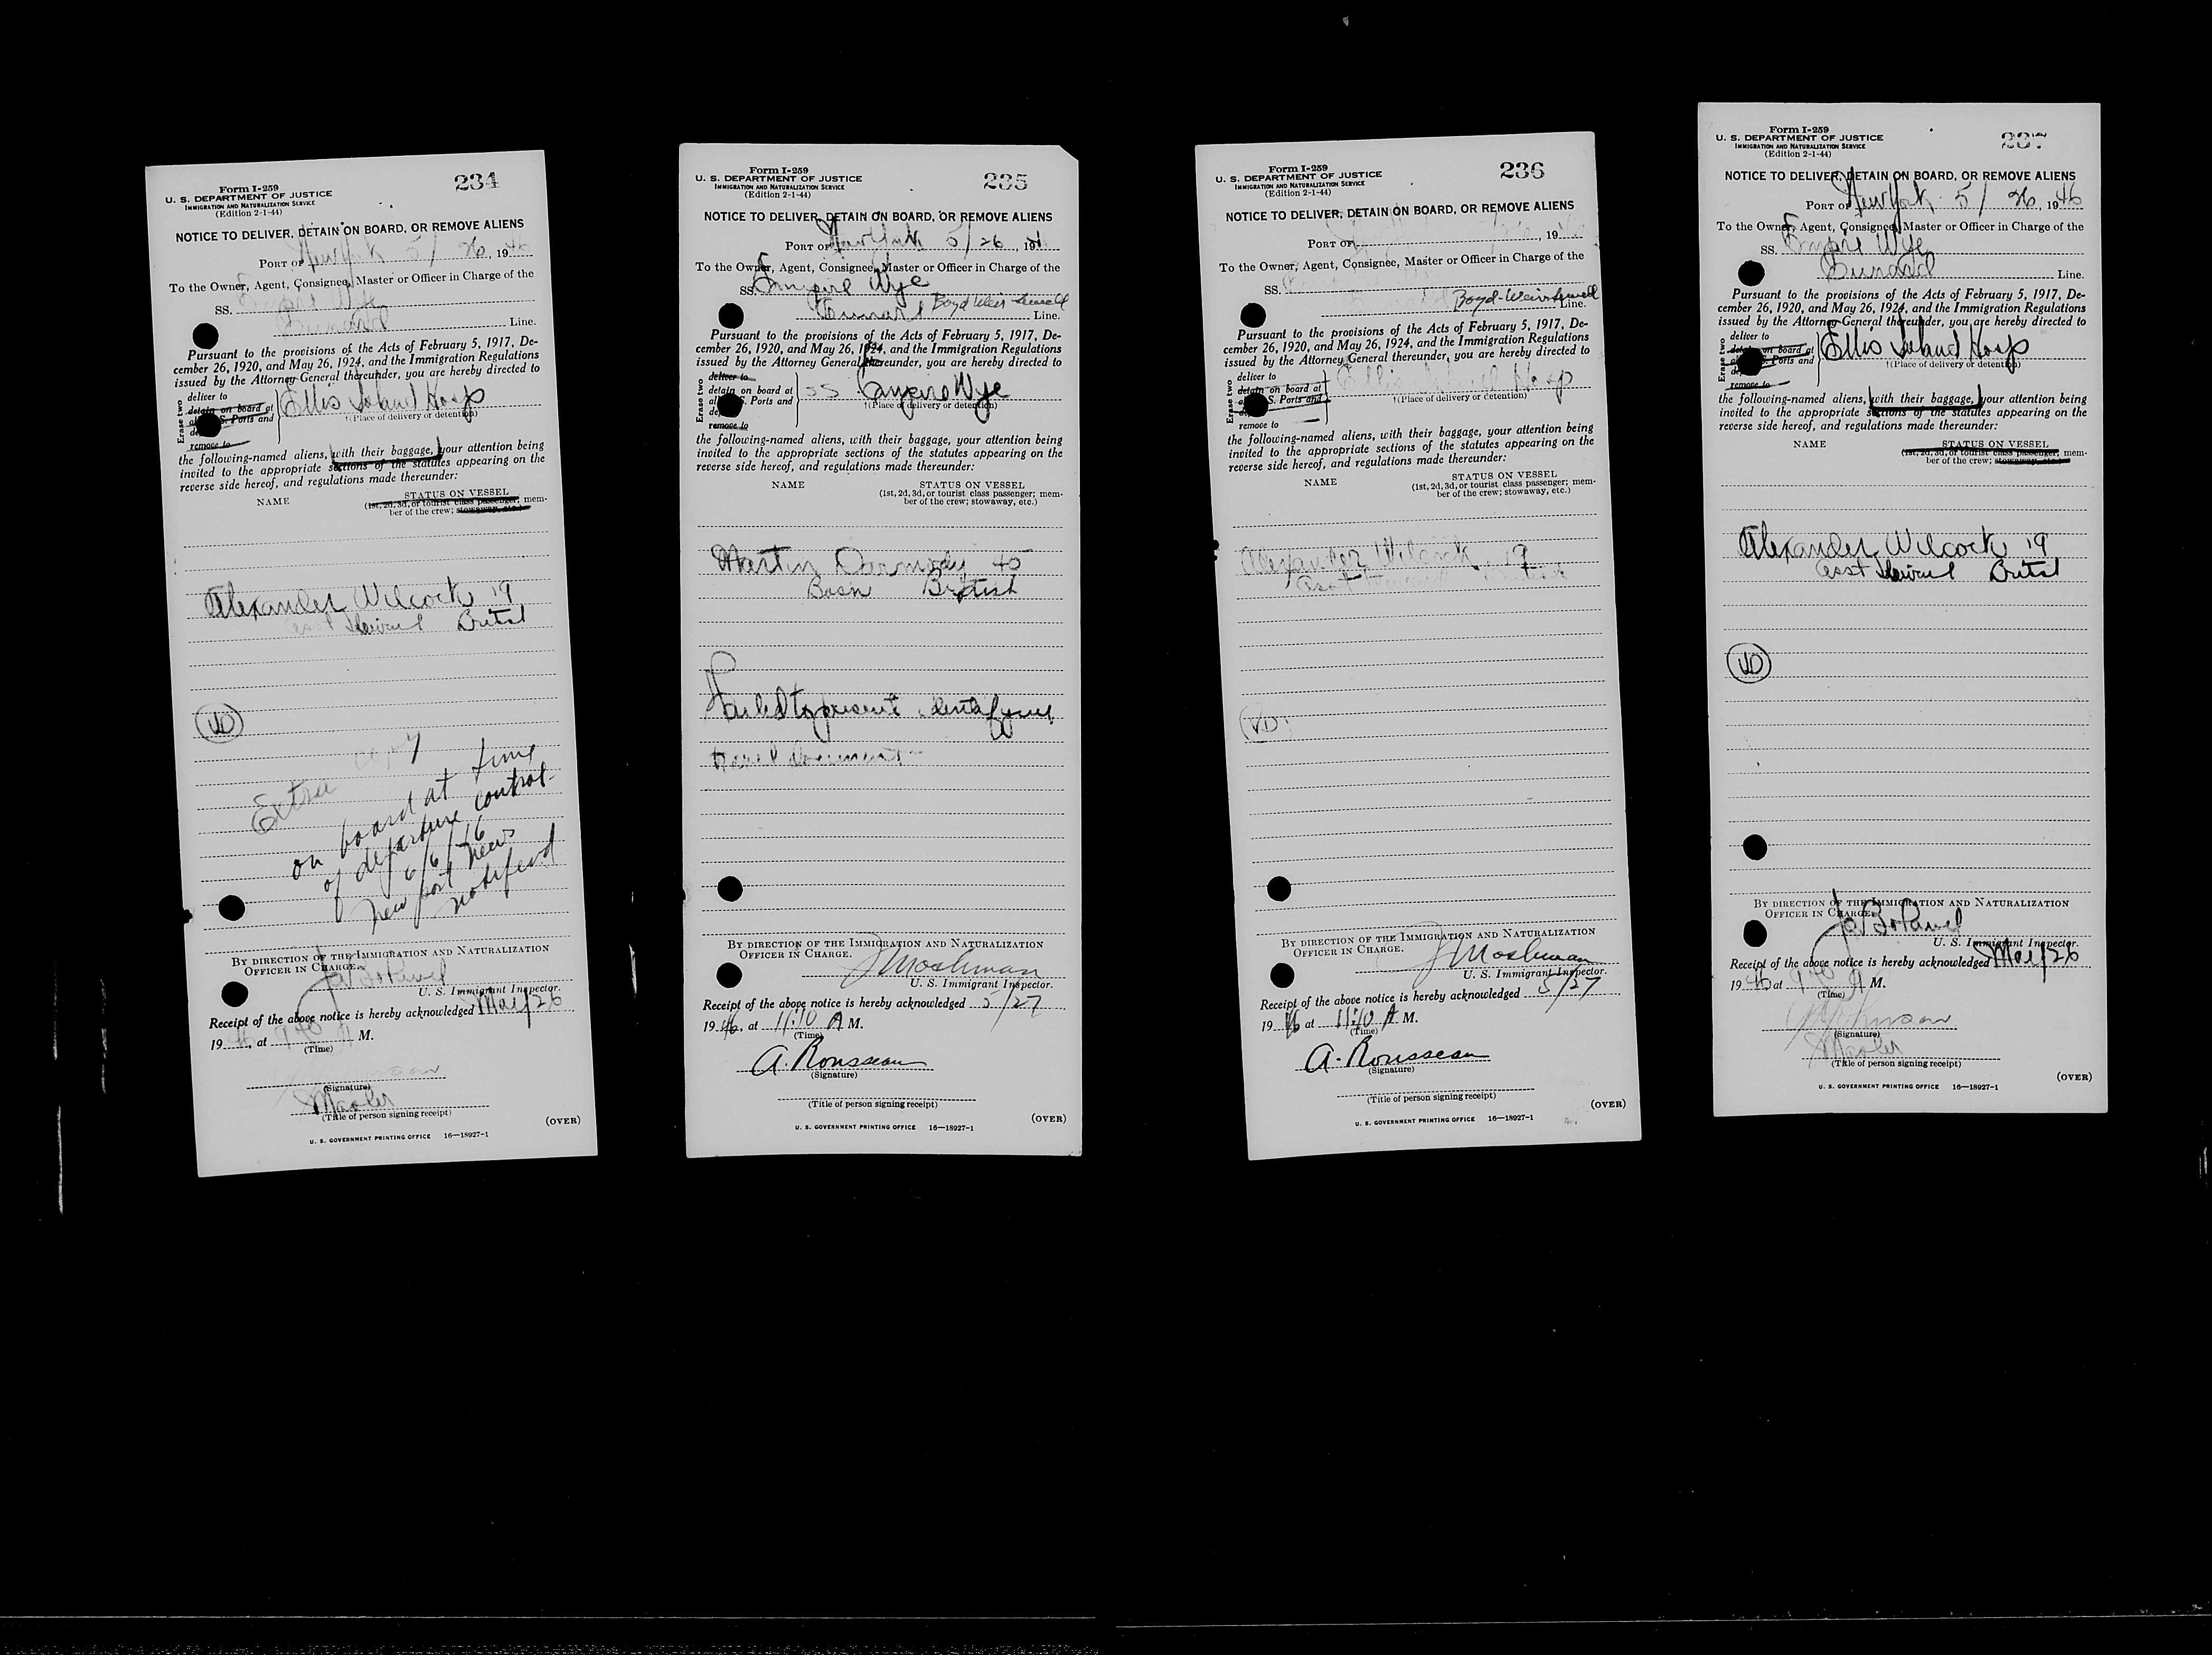 Form I-259
U. S. DEPARTMENT OF JUSTICE
IMMIGRATION AND NATURALIZATION SERVICE
(Edition 2-1-44)
234
NOTICE TO DELIVER, DETAIN ON BOARD, OR REMOVE ALIENS
PORT OF New York 5/26, 1946
To the Owner, Agent, Consignee, Master or Officer in Charge of the
SS. Empire Wye
Cunard Line.
Pursuant to the provisions of the Acts of February 5, 1917, De-
cember 26, 1920, and May 26, 1924, and the Immigration Regulations
issued by the Attorney General thereunder, you are hereby directed to
Erase two
deliver to
detain on board at
S. Ports and
remove to
Ellis Island Hosp
†(Place of delivery or detention)
the following-named aliens, with their baggage, your attention being
invited to the appropriate sections of the statutes appearing on the
reverse side hereof, and regulations made thereunder:
NAME STATUS ON VESSEL
(1st, 2d, 3d, or tourist class passenger; mem-
ber of the crew; stowaway, etc.)
Alexander Wilcock 19
asst Steward British
VD
Extra copy
on board at time
of departure control
6/6/46
New port News
notified
BY DIRECTION OF THE IMMIGRATION AND NATURALIZATION
OFFICER IN CHARGE.
U. S. Immigrant Inspector.
Receipt of the above notice is hereby acknowledged May/26
1946, at 9 40 A M.
(Time)
(Signature)
Master
(Title of person signing receipt)
(OVER)
U. S. GOVERNMENT PRINTING OFFICE 16—18927-1
Form I-259
U. S. DEPARTMENT OF JUSTICE
IMMIGRATION AND NATURALIZATION SERVICE
(Edition 2-1-44)
235
NOTICE TO DELIVER, DETAIN ON BOARD, OR REMOVE ALIENS
PORT OF New York 5/26, 19
To the Owner, Agent, Consignee, Master or Officer in Charge of the
SS. Empire Wye
Cunard Boyd Weir Sewell Line.
Pursuant to the provisions of the Acts of February 5, 1917, De-
cember 26, 1920, and May 26, 1924, and the Immigration Regulations
issued by the Attorney General thereunder, you are hereby directed to
Erase two
deliver to
detain on board at
S. Ports and
remove to
SS Empire Wye
†(Place of delivery or detention)
the following-named aliens, with their baggage, your attention being
invited to the appropriate sections of the statutes appearing on the
reverse side hereof, and regulations made thereunder:
NAME STATUS ON VESSEL
(1st, 2d, 3d, or tourist class passenger; mem-
ber of the crew; stowaway, etc.)
Martin Darmody 40
Bosn British
Failed to present identifying
travel document
BY DIRECTION OF THE IMMIGRATION AND NATURALIZATION
OFFICER IN CHARGE.
J Moshman
U. S. Immigrant Inspector.
Receipt of the above notice is hereby acknowledged 5/27
1946, at 11:10 A M.
(Time)
A. Rousseau
(Signature)
(Title of person signing receipt)
(OVER)
U. S. GOVERNMENT PRINTING OFFICE 16—18927-1
Form I-259
U. S. DEPARTMENT OF JUSTICE
IMMIGRATION AND NATURALIZATION SERVICE
(Edition 2-1-44)
236
NOTICE TO DELIVER, DETAIN ON BOARD, OR REMOVE ALIENS
PORT OF , 19
To the Owner, Agent, Consignee, Master or Officer in Charge of the
SS.
Boyd-Weir Sewell Line.
Pursuant to the provisions of the Acts of February 5, 1917, De-
cember 26, 1920, and May 26, 1924, and the Immigration Regulations
issued by the Attorney General thereunder, you are hereby directed to
Erase two
deliver to
detain on board at
S. Ports and
remove to
Ellis Island Hosp
†(Place of delivery or detention)
the following-named aliens, with their baggage, your attention being
invited to the appropriate sections of the statutes appearing on the
reverse side hereof, and regulations made thereunder:
NAME STATUS ON VESSEL
(1st, 2d, 3d, or tourist class passenger; mem-
ber of the crew; stowaway, etc.)
Alexander Wilcock 19
Asst Steward British
VD
BY DIRECTION OF THE IMMIGRATION AND NATURALIZATION
OFFICER IN CHARGE.
J Moshman
U. S. Immigrant Inspector.
Receipt of the above notice is hereby acknowledged 5/27
1946 at 11:10 A M.
(Time)
A. Rousseau
(Signature)
(Title of person signing receipt)
(OVER)
U. S. GOVERNMENT PRINTING OFFICE 16—18927-1
Form I-259
U. S. DEPARTMENT OF JUSTICE
IMMIGRATION AND NATURALIZATION SERVICE
(Edition 2-1-44)
237
NOTICE TO DELIVER, DETAIN ON BOARD, OR REMOVE ALIENS
PORT OF New York 5/26, 1946
To the Owner, Agent, Consignee, Master or Officer in Charge of the
SS. Empire Wye
Cunard Line.
Pursuant to the provisions of the Acts of February 5, 1917, De-
cember 26, 1920, and May 26, 1924, and the Immigration Regulations
issued by the Attorney General thereunder, you are hereby directed to
Erase two
deliver to
detain on board at
S. Ports and
remove to
Ellis Island Hosp
†(Place of delivery or detention)
the following-named aliens, with their baggage, your attention being
invited to the appropriate sections of the statutes appearing on the
reverse side hereof, and regulations made thereunder:
NAME STATUS ON VESSEL
(1st, 2d, 3d, or tourist class passenger; mem-
ber of the crew; stowaway, etc.)
Alexander Wilcock 19
asst Steward British
VD
BY DIRECTION OF THE IMMIGRATION AND NATURALIZATION
OFFICER IN CHARGE.
U. S. Immigrant Inspector.
Receipt of the above notice is hereby acknowledged May/26
1946 at 9 40 A M.
(Time)
Johnson
(Signature)
Master
(Title of person signing receipt)
(OVER)
U. S. GOVERNMENT PRINTING OFFICE 16—18927-1